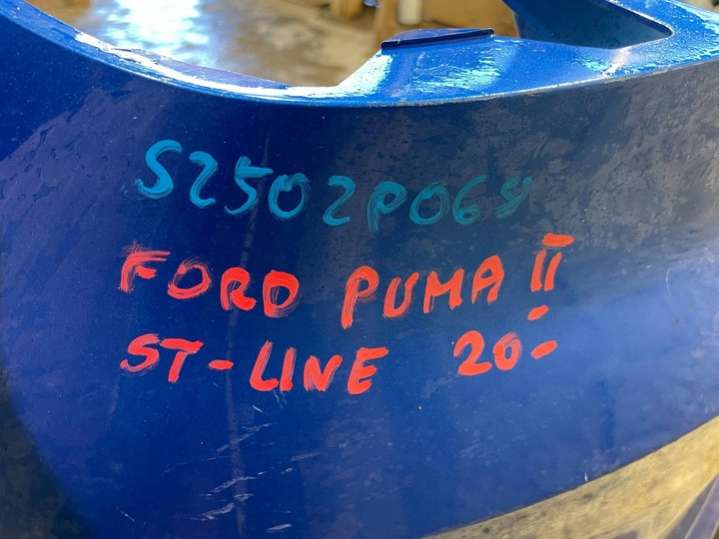 S2502P068
FORD PUMA II
ST-LINE 20-